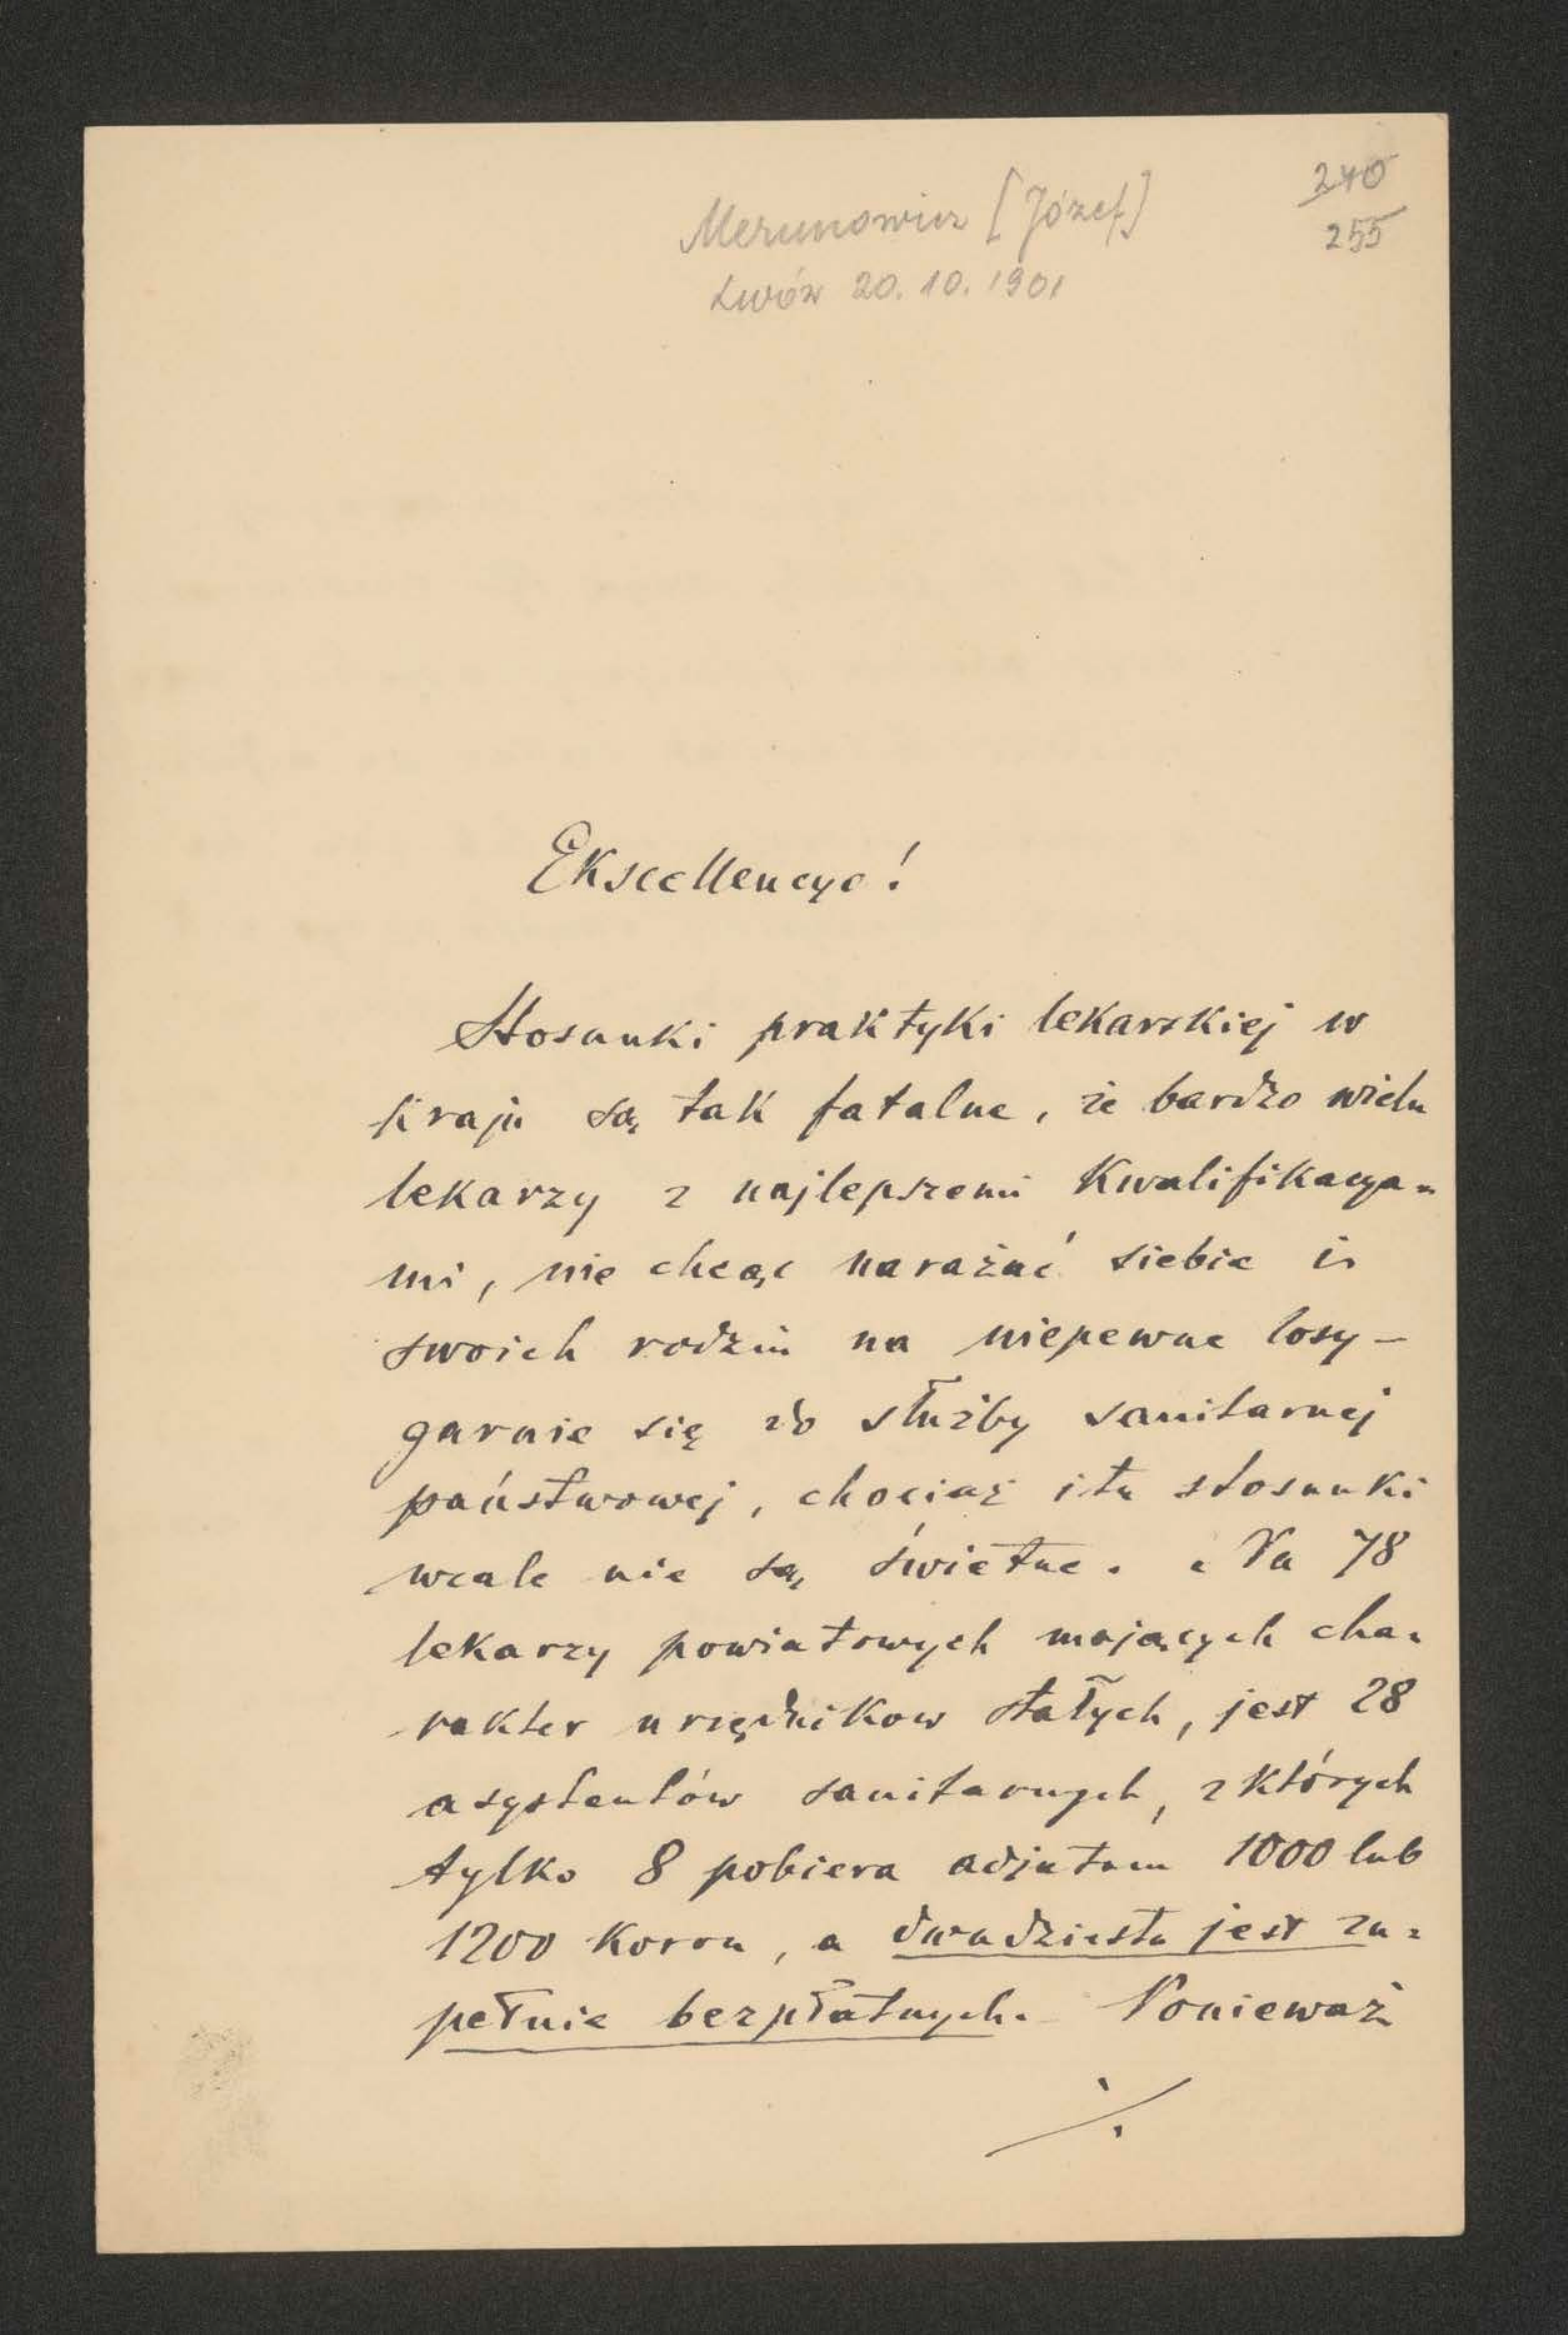 Merunowicz [Józef]
240
Lwów 20. 10. 1901
255
Ekscellencyo!
Stosunki praktyki lekarskiej w
kraju są tak fatalne, że bardzo wielu
lekarzy z najlepszemi kwalifikacya=
mi, nie chcąc narażać siebie i
swoich rodzin na niepewne losy –
garnie się do służby sanitarnej
państwowej, chociaż i tu stosunki
wcale nie są świetne. Na 78
lekarzy powiatowych mających cha=
rakter urzędnikow stałych, jest 28
asystentów sanitarnych, z których
tylko 8 pobiera adjutum 1000 lub
1200 koron, a dwadziestu jest zu=
pełnie bezpłatnych. Ponieważ
./.